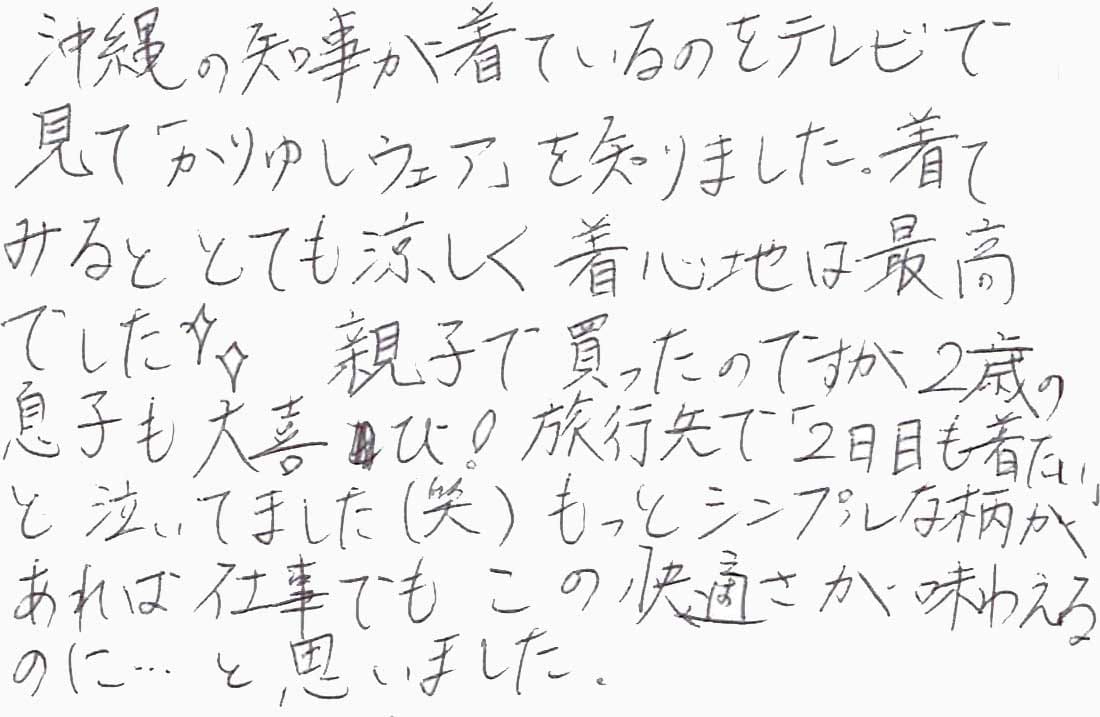 沖縄の知事が着ているのをテレビで
見て「かりゆしウェア」を知りました。着て
みるととても涼しく着心地は最高
でした✧✧ 親子で買ったのですが2歳の
息子も大喜び!旅行先で「2日目も着たい」
と泣いてました(笑)もっとシンプルな柄が
あれば仕事でもこの快適さが味わえる
のに…と思いました。